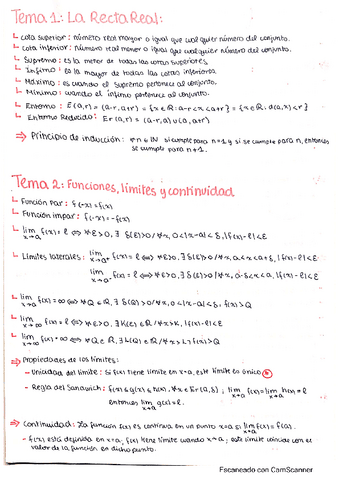 Tema 1: La Recta Real:
↳ cota superior: número real mayor o igual que cualquier número del conjunto.
↳ cota inferior: número real menor o igual que cualquier número del conjunto.
↳ Supremo: es la menor de todas las cotas superiores
↳ Ínfimo: es la mayor de todas las cotas inferiores.
↳ Máximo: es cuando el supremo pertenece al conjunto.
↳ Mínimo: cuando el ínfimo pertenece al conjunto.
↳ Entorno: E(a,r) = (a-r, a+r) = {x∈ℝ: a-r<x<a+r} = {x∈ℝ: d(a,x)<r}
↳ Entorno Reducido: Er(a,r) = (a-r,a)∪(a,a+r)
⇒ Principio de inducción: ∀n∈ℕ si cumple para n=1 y si se cumple para n, entonces
se cumple para n+1.
Tema 2: Funciones, límites y continuidad
↳ Función Par: f(-x)=f(x)
↳ Función impar: f(-x)=-f(x)
↳ lim x→a f(x)=ℓ ⟺ ∀ε>0, ∃ δ(ε)>0/∀x, 0<|x-a|<δ, |f(x)-ℓ|<ε
↳ Límites laterales: lim x→a⁺ f(x)=ℓ ⟺ ∀ε>0, ∃ δ(ε)>0/∀x, a<x<a+δ, |f(x)-ℓ|<ε
lim x→a⁻ f(x)=ℓ ⟺ ∀ε>0, ∃ δ(ε)>0/∀x, a-δ<x<a, |f(x)-ℓ|<ε
↳ lim x→a f(x)=∞ ⟺ ∀Q∈ℝ, ∃ δ(Q)>0/∀x, 0<|x-a|<δ, f(x)>Q
↳ lim x→∞ f(x)=ℓ ⟺ ∀ε>0, ∃ K(ε)∈ℝ/∀x>K, |f(x)-ℓ|<ε
↳ lim x→∞ f(x)=∞ ⟺ ∀Q∈ℝ, ∃ L(Q)∈ℝ/∀x>L, f(x)>Q
⇒ Propiedades de los límites:
- Unicidad del límite: Si f(x) tiene límite en x=a, este límite es único
- Regla del Sandwich: f(x)≤g(x)≤h(x), ∀x∈Er(a,δ); lim x→a f(x)=lim x→a h(x)=ℓ
entonces lim x→a g(x)=ℓ.
⇒ Continuidad: La función f(x) es continua en un punto x=a si lim x→a f(x)=f(a).
- f(x) está definida en x=a, f(x) tiene límite cuando x→a, este límite coincide con el
valor de la función en dicho punto.
Escaneado con CamScanner